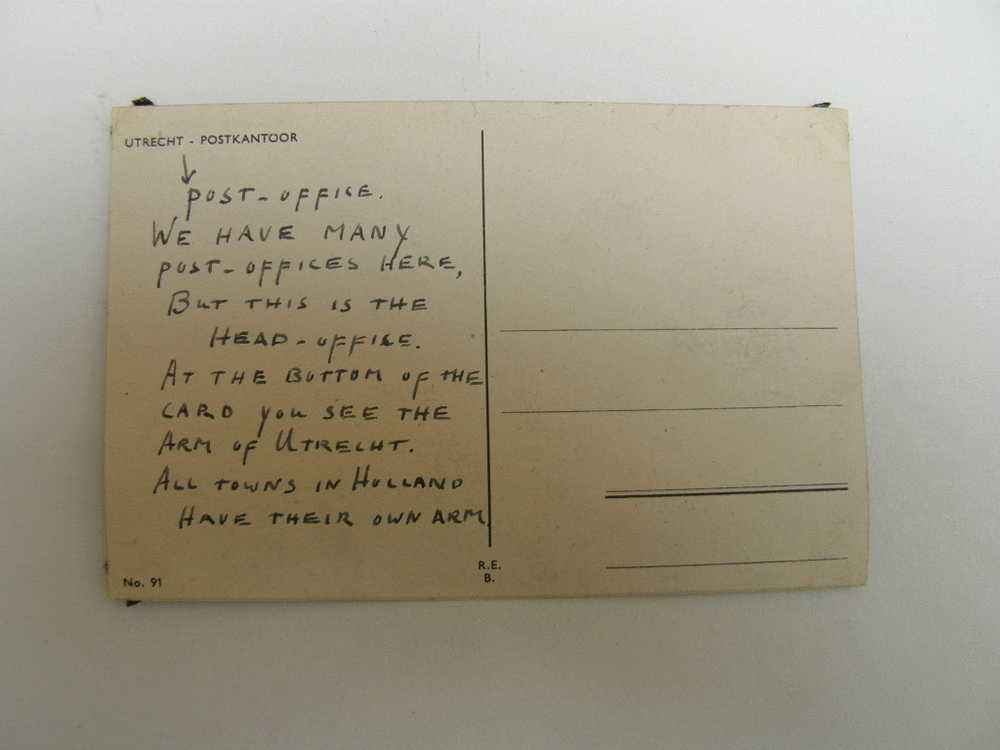 UTRECHT - POSTKANTOOR
POST-OFFICE.
WE HAVE MANY
POST-OFFICES HERE,
BUT THIS IS THE
HEAD-OFFICE.
AT THE BOTTOM OF THE
CARD YOU SEE THE
ARM OF UTRECHT.
ALL TOWNS IN HOLLAND
HAVE THEIR OWN ARM.
No. 91
R.E.
B.